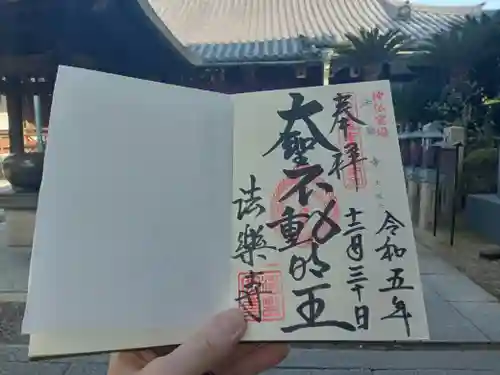 奉拝
令和五年
十二月三十日
大聖不動明王
法樂寺